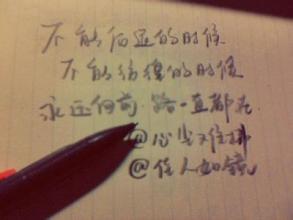 不能后退的时候
不能彷徨的时候
永远向前 路一直都在
@心尖
@佳人如